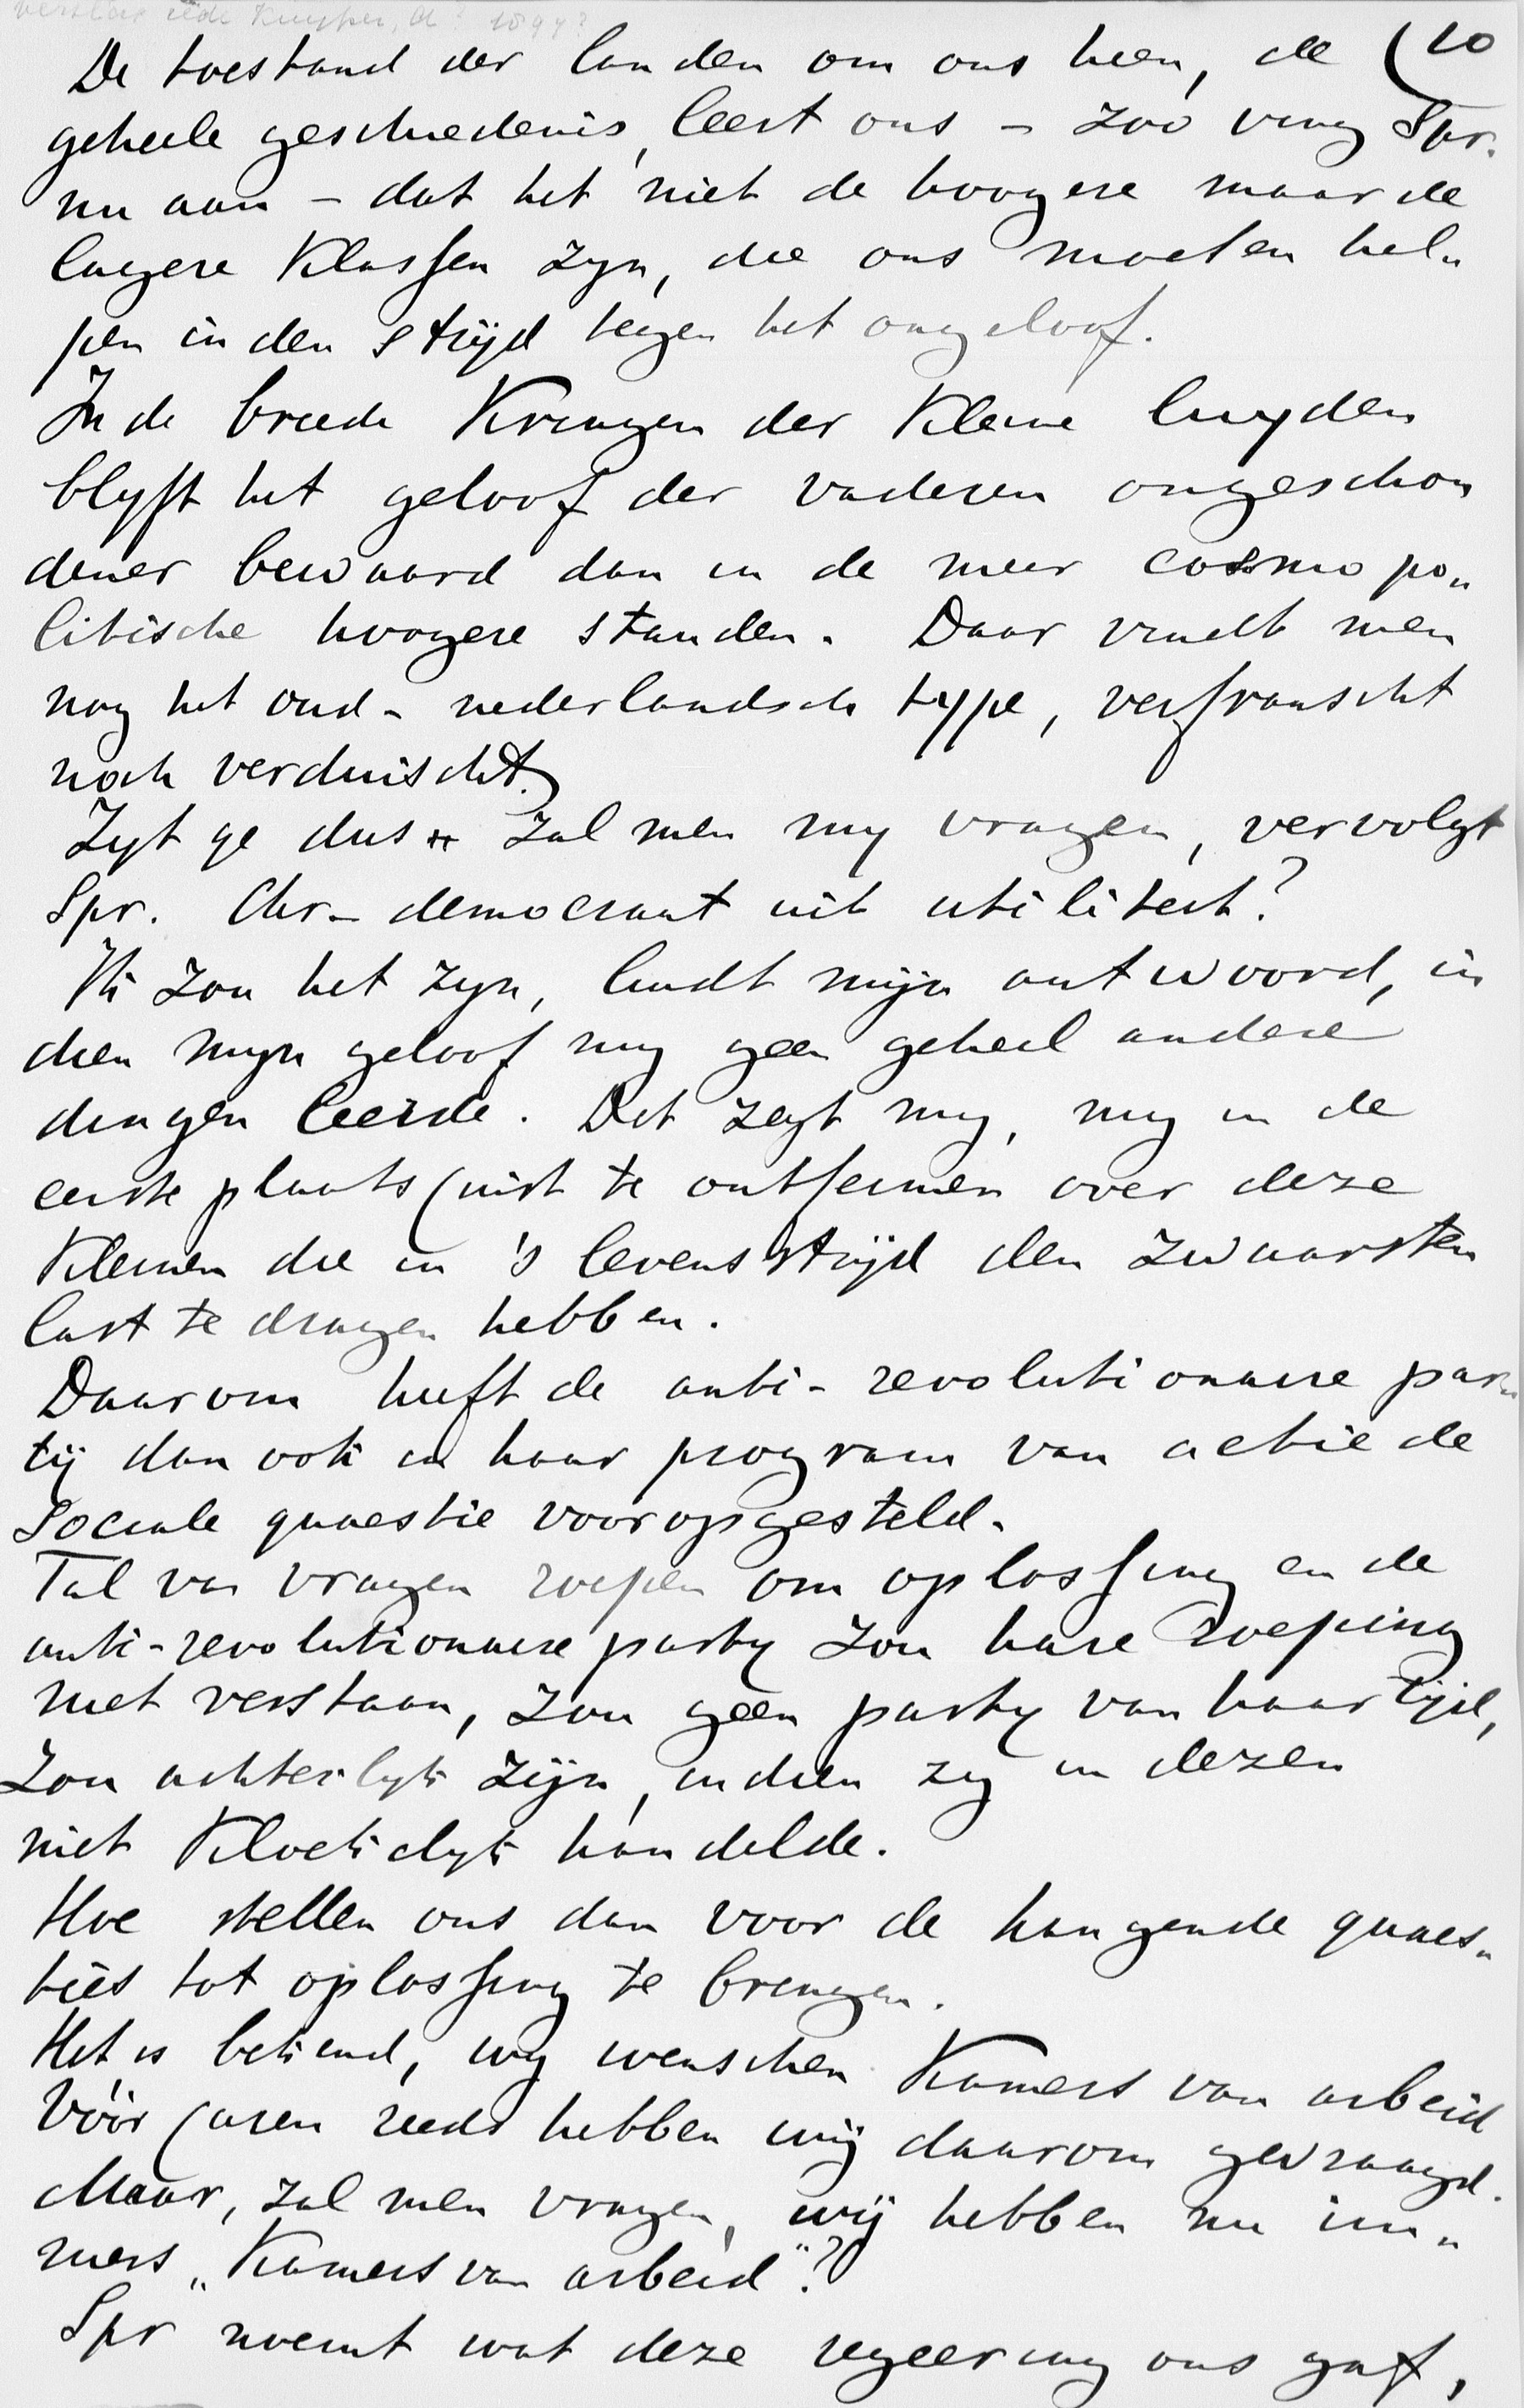 verslag rede Kuyper, A? 1897?
De toestand der landen om ons heen, de (10
geheele geschiedenis, leert ons – zoo ving Spr.
nu aan – dat het niet de hoogere maar de
lagere Klassen zyn, die ons moeten hel„
pen in den strijd tegen het ongeloof.
In de breede Kringen der Kleine luyden
blyft het geloof der vaderen ongeschon
dener bewaard dan in de meer cosmopo„
litische hoogere standen. Daar vindt men
nog het oud-nederlandsch type, verfranscht
noch verduischt.
Zyt ge dus zal men my vragen, vervolgt
Spr. Chr-democraat uit utiliteit?
Ik zou het zyn, luidt mijn antwoord, in
dien myn geloof my geen geheel andere
dingen leerde. Dit zegt my, my in de
eerste plaats juist te ontfermen over deze
Kleinen die in 's levensstrijd den zwaarsten
last te dragen hebben.
Daarom heeft de anti-revolutionaire par„
tij dan ook in haar program van actie de
Sociale quaestie vooropgesteld.
Tal van vragen roepen om oplossing en de
anti-revolutionaire party zou hare roeping
niet verstaan, zou geen party van haar tijd,
zou achterlyk zijn, indien zy in dezen
niet Kloekelyk handelde.
Hoe stellen ons dan voor de hangende quaes„
ties tot oplossing te brengen.
Het is bekend, wy wenschen Kamers van arbeid
Vóór jaren reeds hebben wij daarom gevraagd.
Maar, zal men vragen, wij hebben nu im„
mers „Kamers van arbeid"?
Spr noemt wat deze regeering ons gaf,